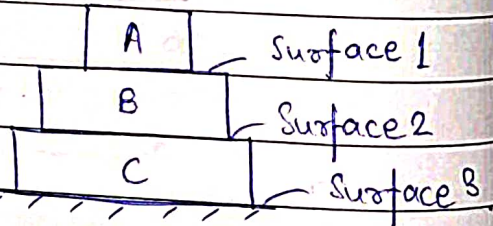 A
Surface 1
B
Surface 2
C
Surface 3